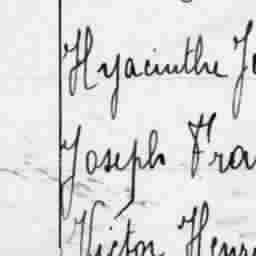 Hyacinthe
Joseph Fra
Victor Henri